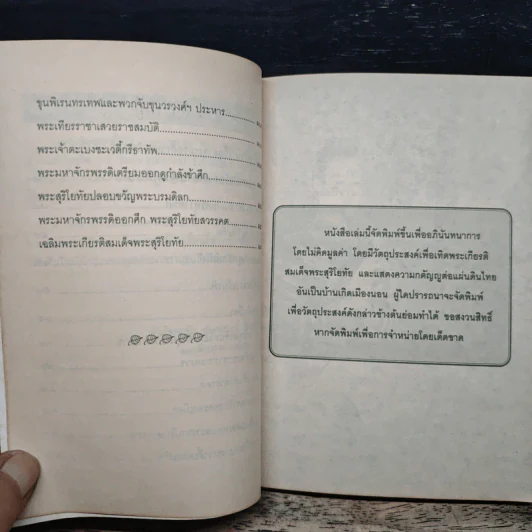 ขุนพิเรนทรเทพและพวกจับขุนวรวงศ์ฯ ประหาร
พระเทียรราชาเสวยราชสมบัติ
พระเจ้าตะเบงชะเวตี้กรีธาทัพ
พระมหาจักรพรรดิเตรียมออกดูกำลังข้าศึก
พระสุริโยทัยปลอบขวัญพระบรมดิลก
พระมหาจักรพรรดิออกศึก พระสุริโยทัยสวรรคต
เฉลิมพระเกียรติสมเด็จพระสุริโยทัย
หนังสือเล่มนี้จัดพิมพ์ขึ้นเพื่ออภินันทนาการ
โดยไม่คิดมูลค่า โดยมีวัตถุประสงค์เพื่อเทิดพระเกียรติ
สมเด็จพระสุริโยทัย และแสดงความกตัญญูต่อแผ่นดินไทย
อันเป็นบ้านเกิดเมืองนอน ผู้ใดปรารถนาจะจัดพิมพ์
เพื่อวัตถุประสงค์ดังกล่าวข้างต้นย่อมทำได้ ขอสงวนสิทธิ์
หากจัดพิมพ์เพื่อการจำหน่ายโดยเด็ดขาด